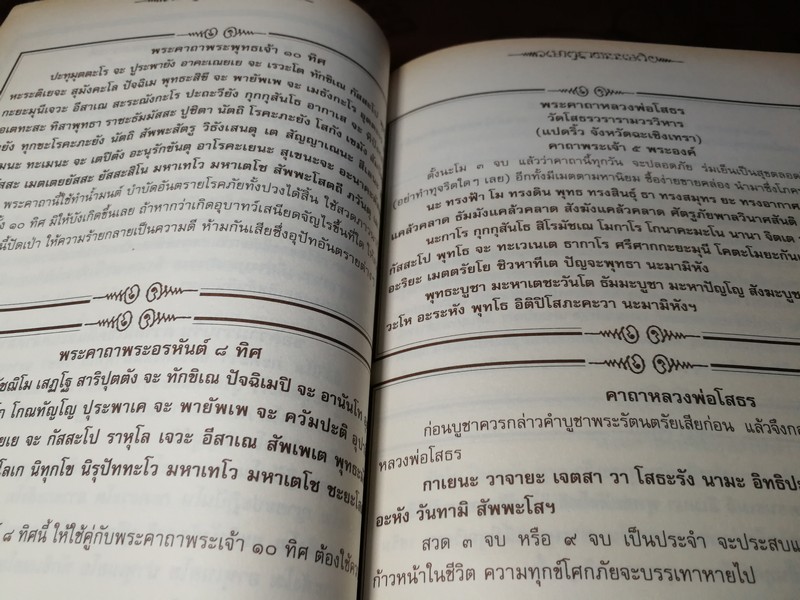 พระคาถาพระพุทธเจ้า ๑๐ ทิศ
ปะทุมุตตะโร จะ ปูระพายัง อาคะเณยเย จะ เรวะโต ทักขิเณ กัสสะโป
หะระดิเยจะ สุมังคะโล ปัจฉิเม พุทธะสิขี จะ พายัพเพ จะ เมธังกะโร
กะยะมุนีเจวะ อีสาเณ สะระณังกะโร ปะถะวียัง กุกกุสันโธ อากาเส จะ
เอเตทะสะ ทิสาพุทธา ราชะธัมมัสสะ ปูชิตา นัตถิ โรคะภะยัง โสกัง เขมัง
ทุกขะโรคะภะยัง นัตถิ สัพพะสัตรู วิธังเสนตุ เต สัญญาเณนะ
ทะเมนะ จะ เตปิตัง อะนุรักขันตุ อาโรคะเยนะ สุเขนะจะ
เมตเตยยัสสะ ยัสสะสิโน มหาเทโว มหาเตโช สัพพะโสตถี ภะวันตุ
พระคาถานี้ใช้ทำน้ำมนต์ บำบัดอันตรายโรคภัยทั้งปวงได้สิ้น ใช้สวดภาวนา
๑๐ ทิศ มิให้บังเกิดขึ้นเลย ถ้าหากว่าเกิดอุบาทว์เสนียดจัญไรขึ้นที่ใด
นี้ปัดเป่า ให้ความร้ายกลายเป็นความดี ห้ามกันเสียซึ่งอุปัทอันตรายต่างๆ
พระคาถาพระอรหันต์ ๘ ทิศ
เสฏโฐ สาริปุตตัง จะ ทักขิเณ ปัจฉิเมปิ จะ อานันโท
โกณทัญโญ ปุระพาเค จะ พายัพเพ จะ ควัมปะติ
จะ กัสสะโป ราหุโล เจวะ อีสาเณ สัพเพเต พุทธะ
นิทุกโข นิรุปัททะโว มหาเทโว มหาเตโช ชะยะ
๘ ทิศนี้ ให้ใช้คู่กับพระคาถาพระเจ้า ๑๐ ทิศ ต้องใช้
พระคาถาหลวงพ่อโสธร
วัดโสธรวรารามวรวิหาร
(แปดริ้ว จังหวัดฉะเชิงเทรา)
คาถาพระเจ้า ๕ พระองค์
ตั้งนะโม ๓ จบ แล้วว่าคาถานี้ทุกวัน จะปลอดภัย ร่มเย็นเป็นสุขตลอด
(อย่าทำทุจริตใดๆ เลย) อีกทั้งมีเมตตามหานิยม ซื้อง่ายขายคล่อง นำมาซึ่งโภค
นะ ทรงฟ้า โม ทรงดิน พุทธ ทรงสินธุ์ ธา ทรงสมุทร ยะ ทรงอากาศ
แคล้วคลาด ธัมมังแคล้วคลาด สังฆังแคล้วคลาด ศัตรูภัยพาลวินาศสันติ
นะกาโร กุกกุสันโธ สิโรมัชเฌ โมกาโร โกนาคะมะโน นานา จิตเต
กัสสะโป พุทโธ จะ ทะเวเนเต ธากาโร ศรีศากกะยะมุนี โคตะโมยะกัน
อะริยะ เมตตรัยโย ชิวหาทีเต ปัญจะพุทธา นะมามิหัง
พุทธะบูชา มะหาเตชะวันโต ธัมมะบูชา มะหาปัญโญ สังฆะบูชา
วะโห อะระหัง พุทโธ อิติปิโสภะคะวา นะมามิหังฯ
คาถาหลวงพ่อโสธร
ก่อนบูชาควรกล่าวคำบูชาพระรัตนตรัยเสียก่อน แล้วจึง
หลวงพ่อโสธร
กาเยนะ วาจายะ เจตสา วา โสธะรัง นามะ อิทธิ
อะหัง วันทามิ สัพพะโสฯ
สวด ๓ จบ หรือ ๙ จบ เป็นประจำ จะประสบ
ก้าวหน้าในชีวิต ความทุกข์โศกภัยจะบรรเทาหายไป